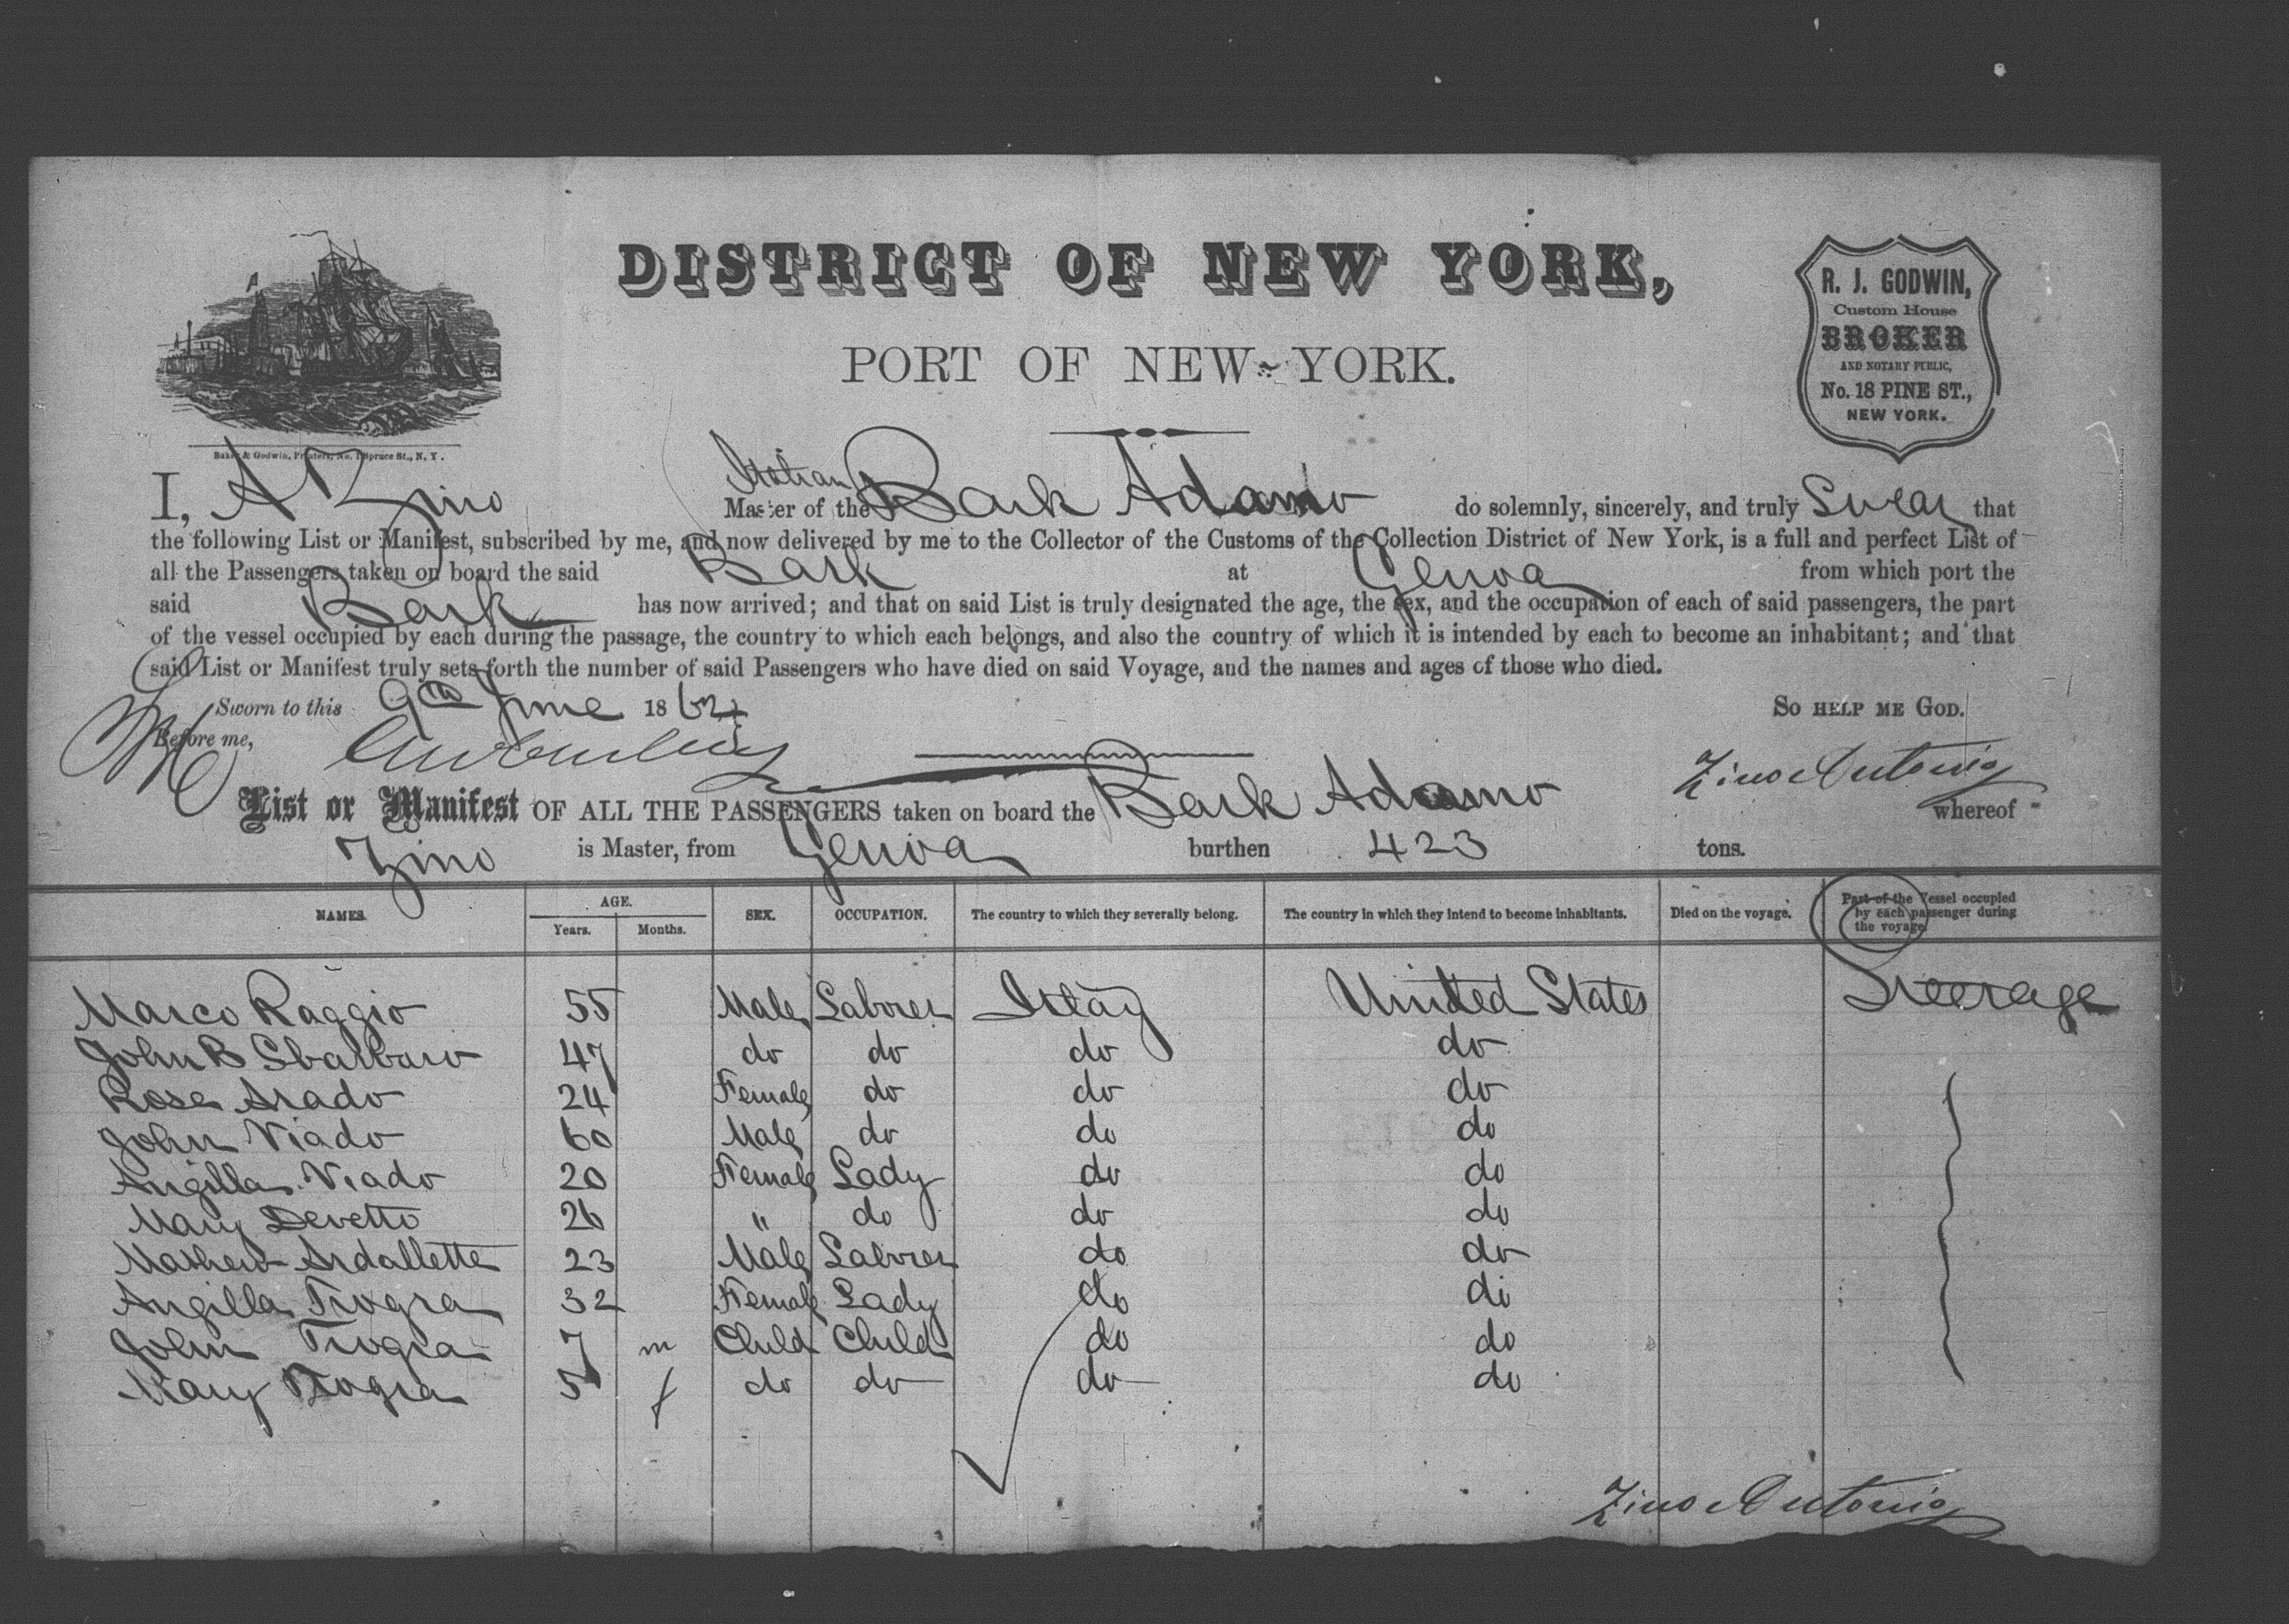 DISTRICT OF NEW YORK,
PORT OF NEW-YORK.
R. J. GODWIN,
Custom House
BROKER
AND NOTARY PUBLIC,
No. 18 PINE ST.,
NEW YORK.
Baker & Godwin, Printers, No. 1 Spruce St., N. Y.
I, A Zino Master of the Italian Bark Adamo do solemnly, sincerely, and truly Swear that
the following List or Manifest, subscribed by me, and now delivered by me to the Collector of the Customs of the Collection District of New York, is a full and perfect List of
all the Passengers taken on board the said Bark at Genoa from which port the
said Bark has now arrived; and that on said List is truly designated the age, the sex, and the occupation of each of said passengers, the part
of the vessel occupied by each during the passage, the country to which each belongs, and also the country of which it is intended by each to become an inhabitant; and that
said List or Manifest truly sets forth the number of said Passengers who have died on said Voyage, and the names and ages of those who died.
Sworn to this 9th June 1862 So HELP ME GOD.
Before me,
Zino Antonio
List or Manifest OF ALL THE PASSENGERS taken on board the Bark Adamo whereof
Zino is Master, from Genoa burthen 423 tons.
NAMES. AGE. Years. Months. SEX. OCCUPATION. The country to which they severally belong. The country in which they intend to become inhabitants. Died on the voyage. Part of the Vessel occupied by each passenger during the voyage.
Marco Raggio 55 Male Laborer Italy United States Steerage
John B Sbarbaro 47 do do do do
Rosa Arado 24 Female do do do
John Viado 60 Male do do do
Angilla Viado 20 Female Lady do do
Mary Devetto 26 " do do do
Mathew Ardallette 23 Male Laborer do do
Angilla Trogra 32 Female Lady do do
John Trogra 7 m Child Child do do
Mary Trogra 5 f do do do do
Zino Antonio